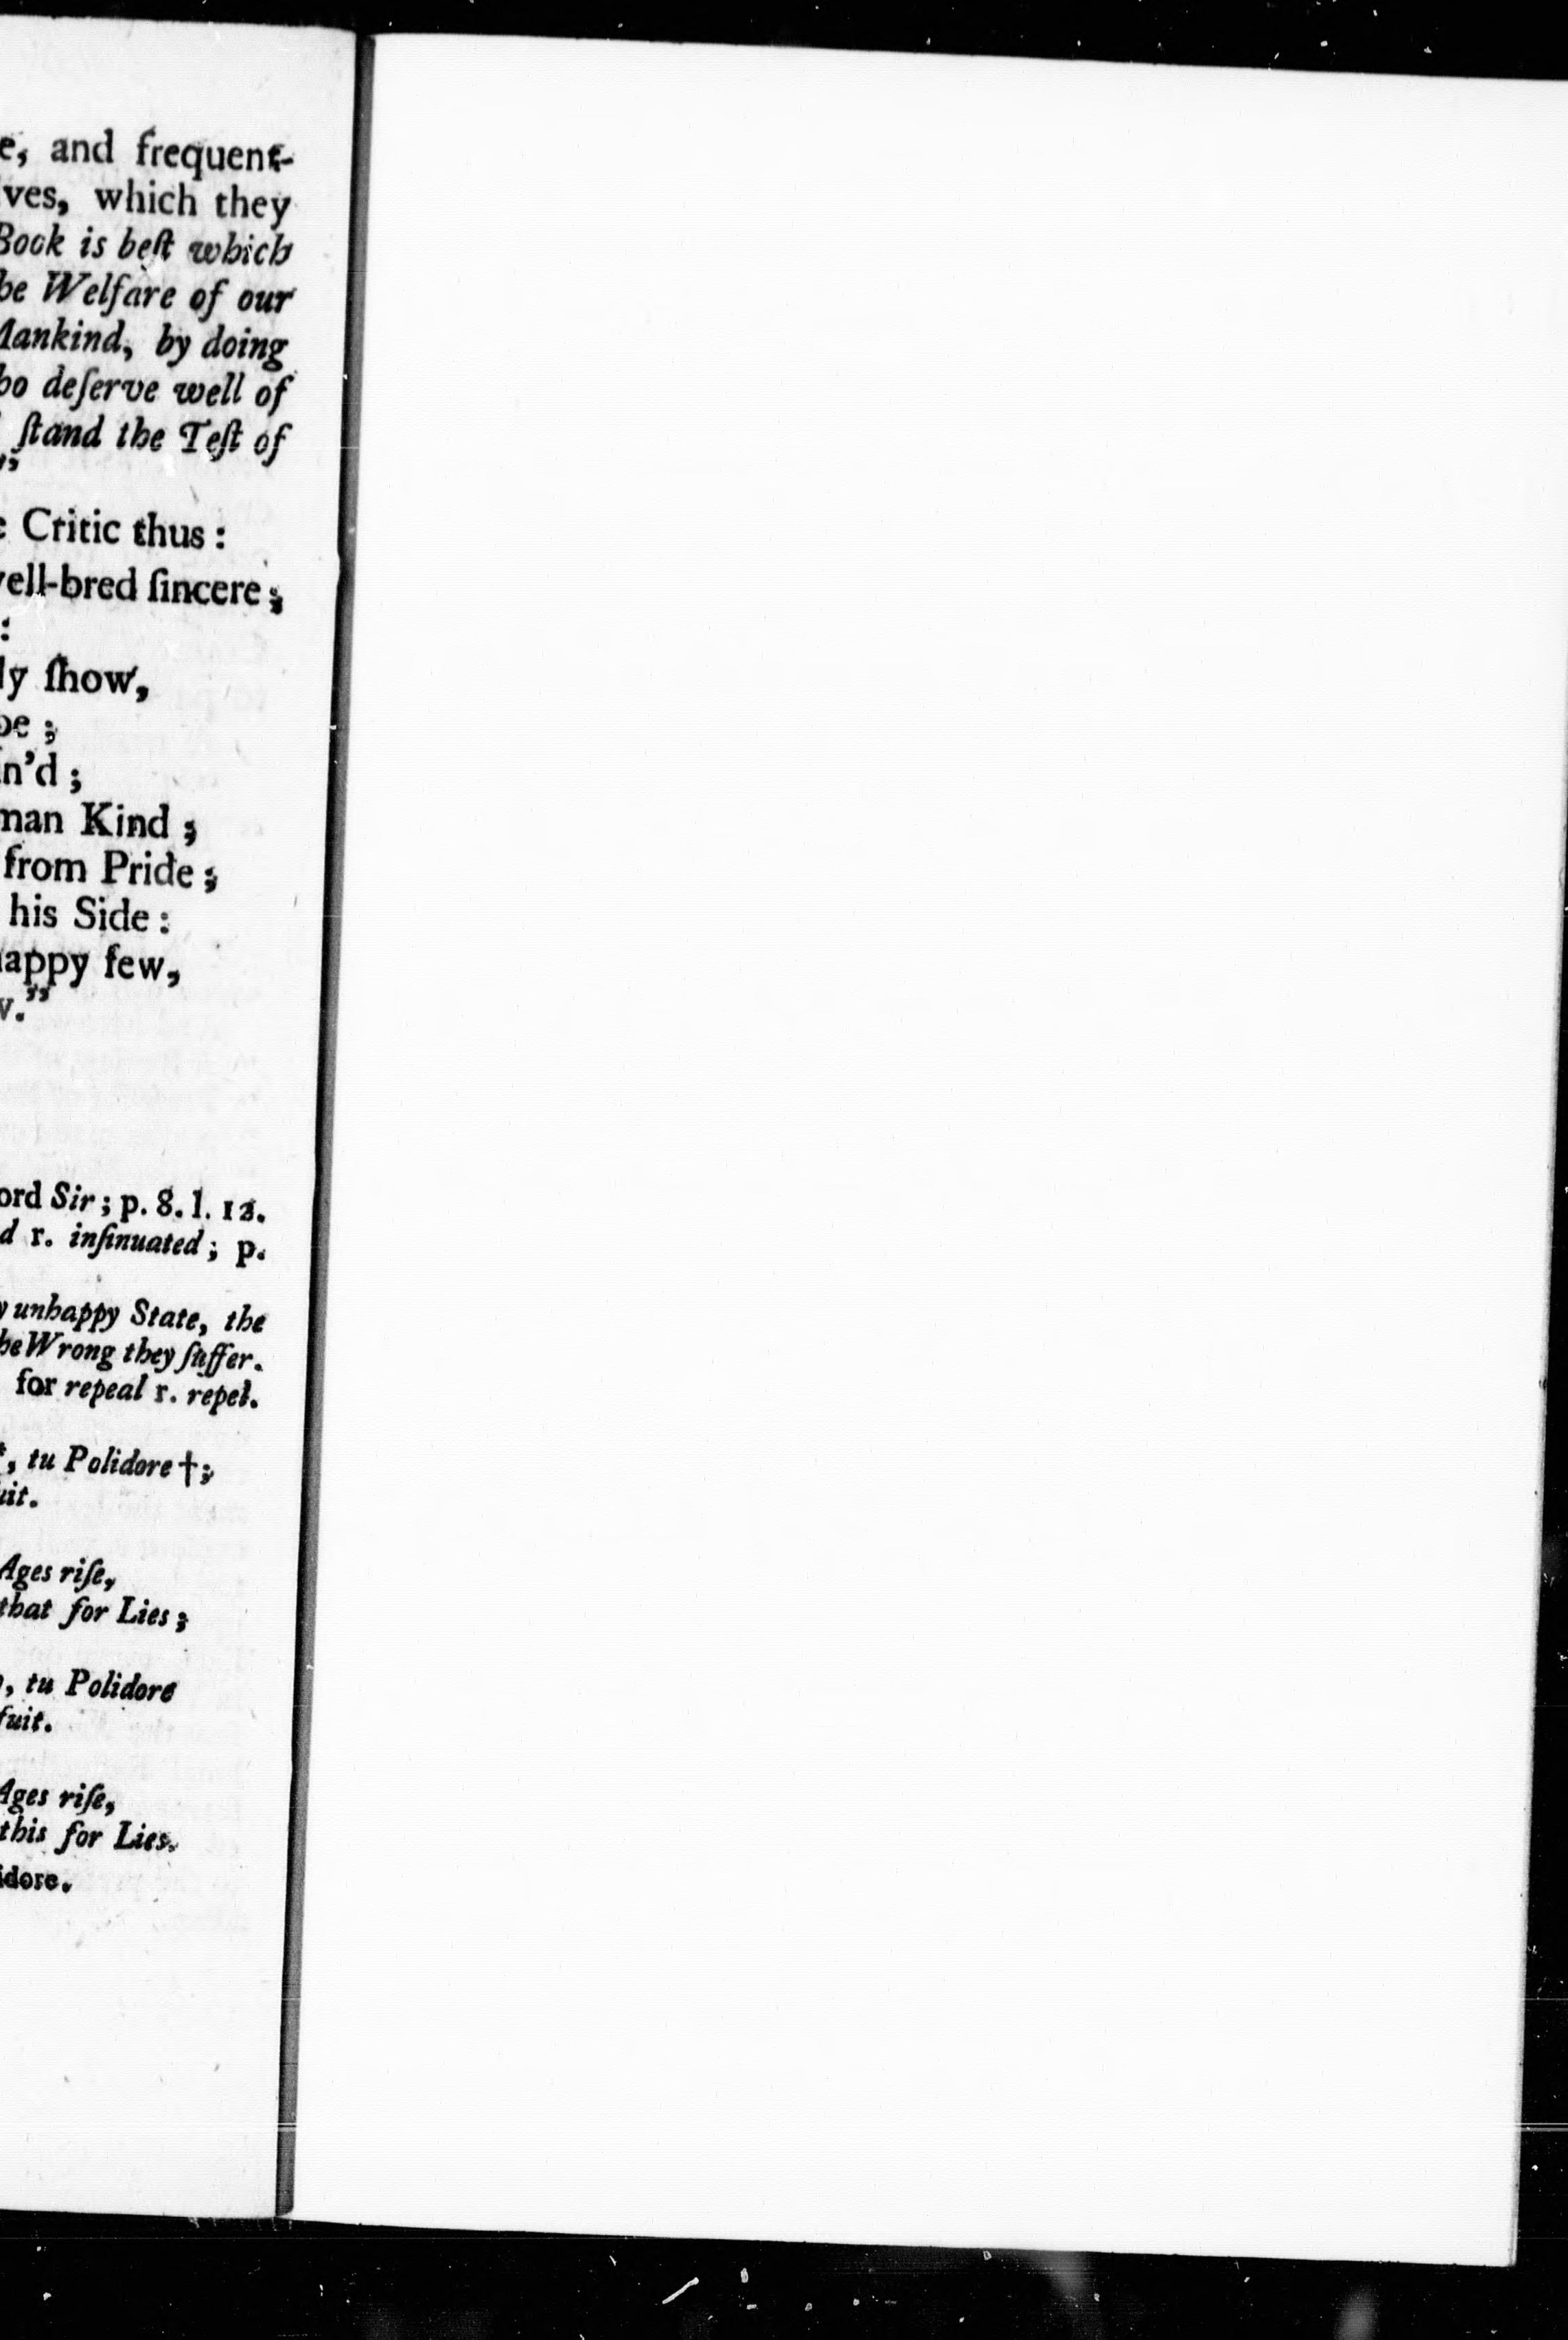 and frequent-
which they
Book is beſt which
Welfare of our
Mankind, by doing
deſerve well of
ſtand the Teſt of
”
Critic thus :
well-bred ſincere ;
:
ſhow,
;
;
Kind ;
from Pride ;
his Side :
happy few,
”
Sir ; p. 8. l. 12.
r. inſinuated ; p.
unhappy State, the
Wrong they ſuffer.
for repeal r. repel.
tu Polidore † ;
Ages riſe,
that for Lies ;
tu Polidore
fuit.
Ages riſe,
this for Lies.